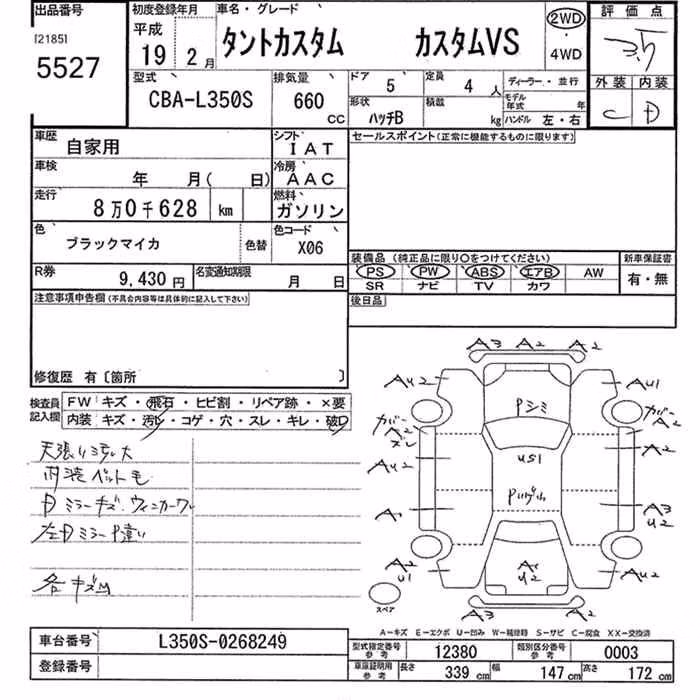 出品番号 初度登録年月 車名・グレード 2WD 評価点
[2185] 平成 タントカスタム カスタムVS 3.5
5527 19 2月 4WD
型式 排気量 ドア 5 定員 4人 ディーラー・並行 外装 内装
CBA-L350S 660 CC 形状 ハッチB 積載 kg モデル年式 年 ハンドル 左・右 C D
車歴 自家用 シフト IAT セールスポイント(正常に機能するものに限ります)
車検 年 月( 日) 冷房 AAC
走行 8万0千628 km 燃料 ガソリン
色 ブラックマイカ 色替 色コード X06
装備品 (純正品に限り○をつけてください) 新車保証書
R券 9,430円 名変通知期限 月 日 PS PW ABS エアB AW 有・無
SR ナビ TV カワ
注意事項申告欄(不具合内容等は具体的に記入して下さい) 後日品
修復歴 有〔箇所 〕
検査員記入欄 FW キズ・飛石・ヒビ割・リペア跡・×要
内装 キズ・汚レ・コゲ・穴・スレ・キレ・破レ
内装ペットモ
各キズ凹
A3 A2 A2
AU2 AU1
Pシミ
A2
A2
AU2
US1
A3
U2
A1
A2
U1
A1
U2
AU2
スペア
A3 A2
A-キズ E-エクボ U-凹み W-補修跡 S-サビ C-腐食 XX-交換済
車台番号 L350S-0268249 型式指定番号 参考 12380 類別区分番号 参考 0003
登録番号 車庫証明用 参考 長さ 339 cm 幅 147 cm 高さ 172 cm